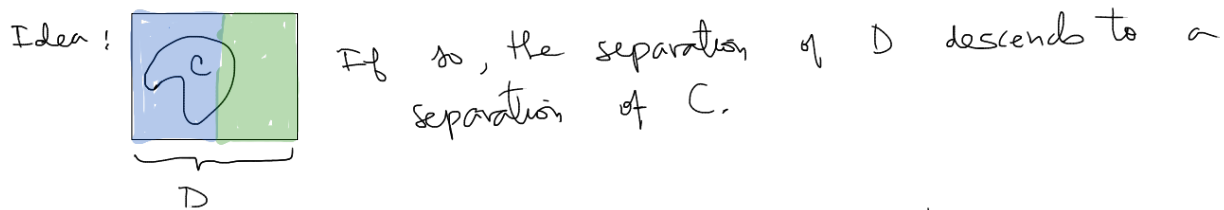 Idea: If so, the separation of D descends to a
C separation of C.
D